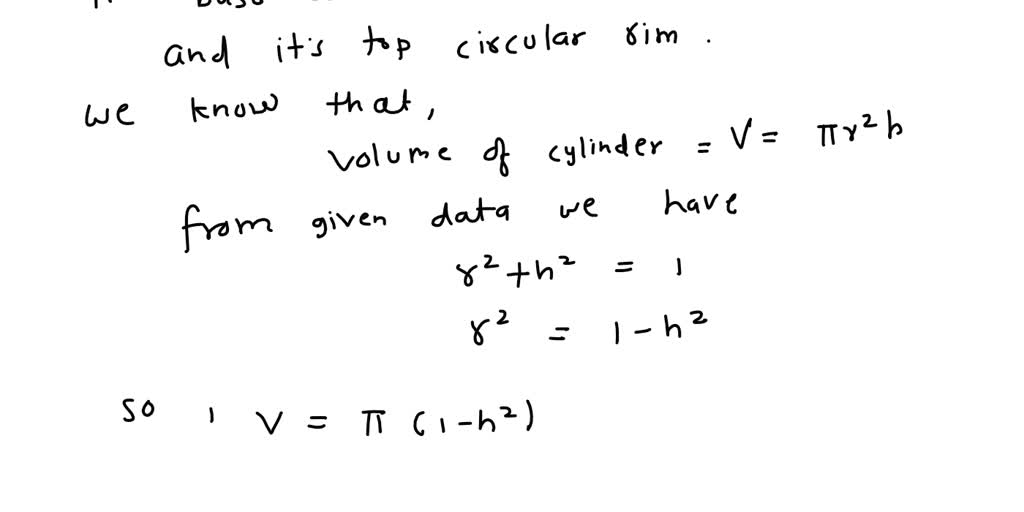 and it's top circular rim .
we know that,
volume of cylinder = V = πr²h
from given data we have
r² + h² = 1
r² = 1 - h²
so , V = π (1-h²)